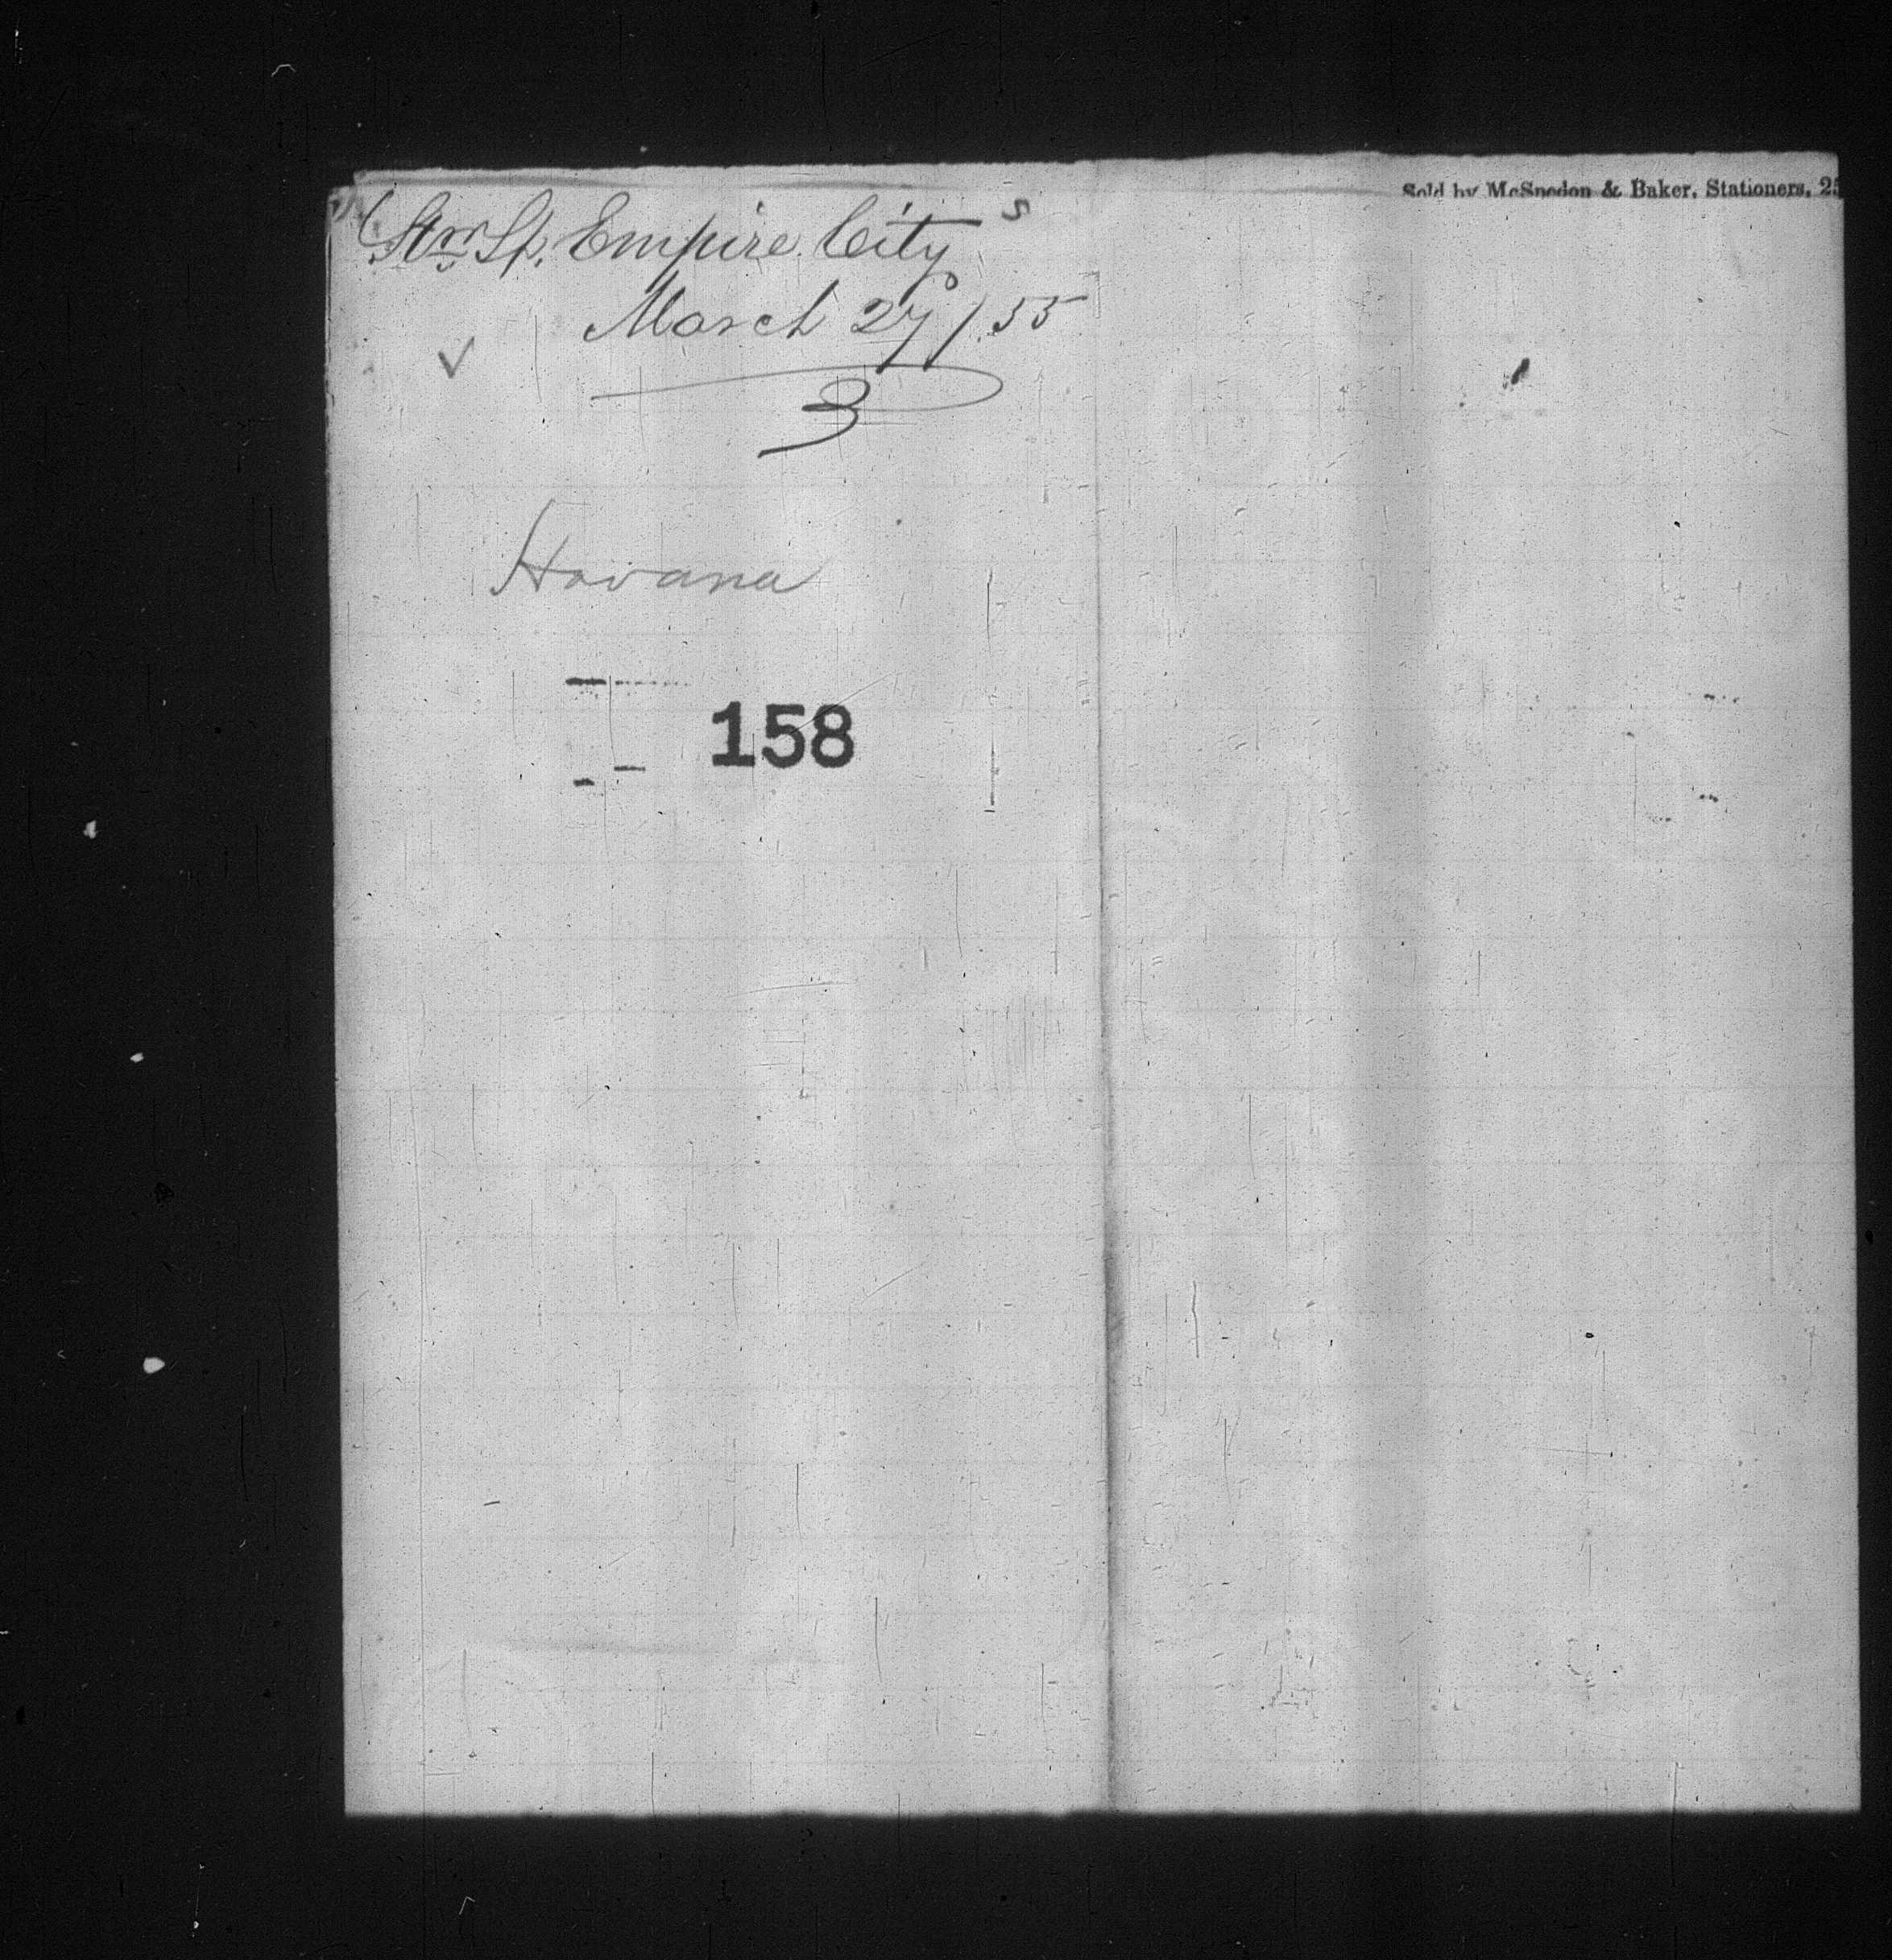 Sold by McSpedon & Baker, Stationers, 25
StmSp. Empire City s
March 27/55
✓
3
Havana
158